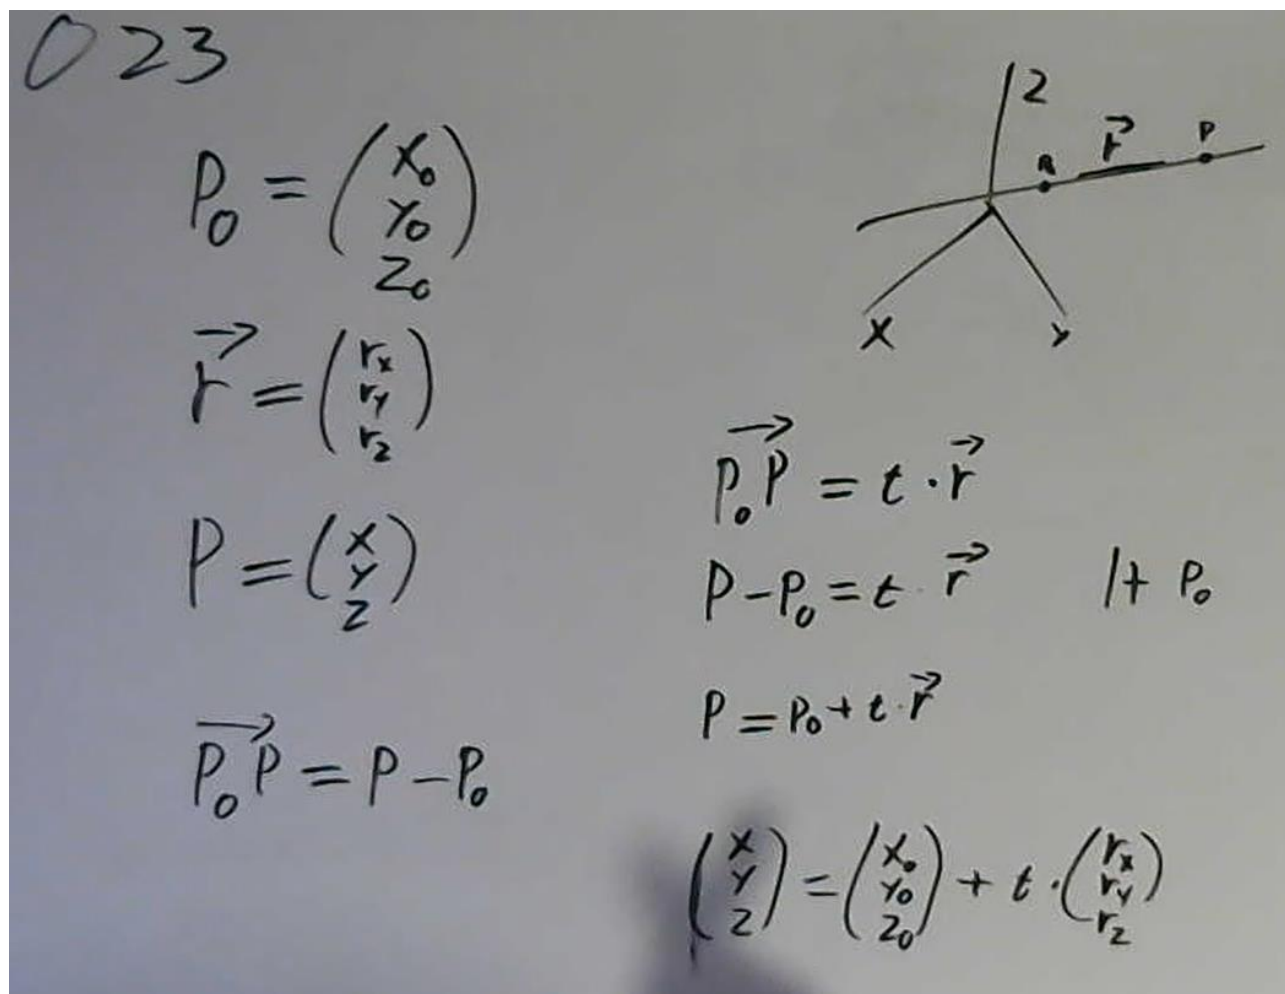 023
P₀ = (x₀ y₀ z₀)
r⃗ = (rₓ rᵧ r_z)
P = (x y z)
P₀P⃗ = P − P₀
z
P₀ r⃗ P
x y
P₀P⃗ = t · r⃗
P − P₀ = t · r⃗ |+ P₀
P = P₀ + t · r⃗
(x y z) = (x₀ y₀ z₀) + t · (rₓ rᵧ r_z)